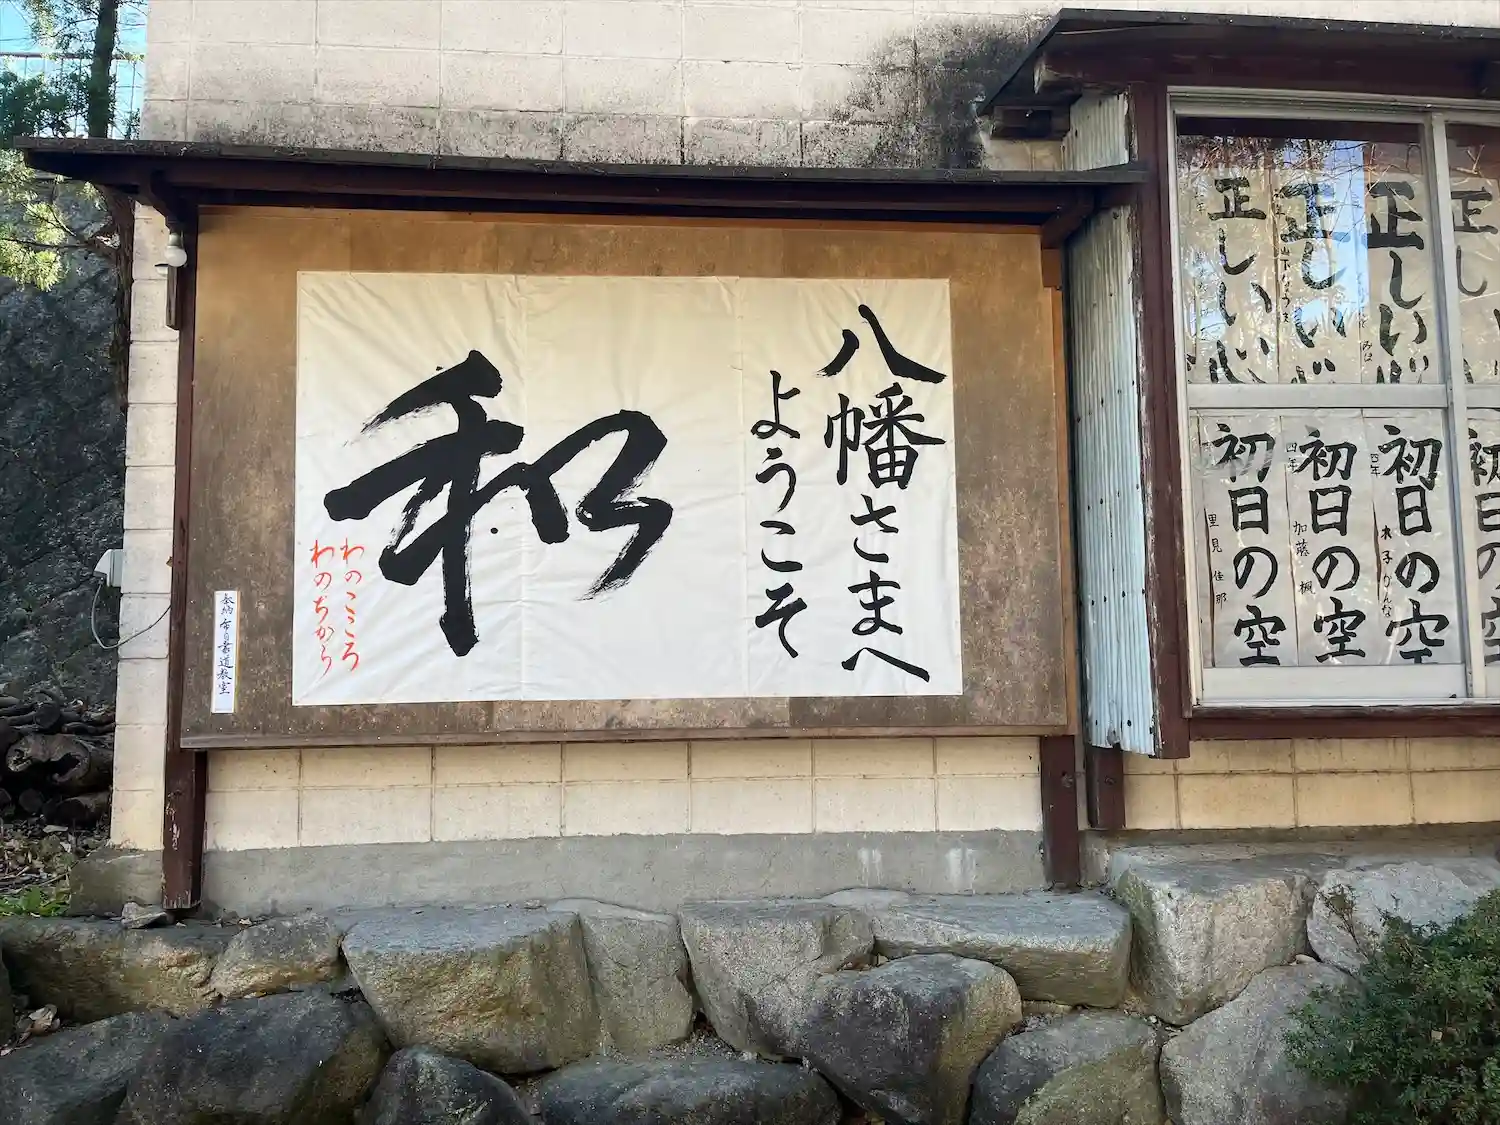 八幡さまへ
ようこそ
和
わのこころ
わのちから
奉納
書道教室
正しい
正しい
正しい
正し
初日の空
四年
里見佳那
初日の空
四年
加藤楓
初日の空
四年
かんな
初日の